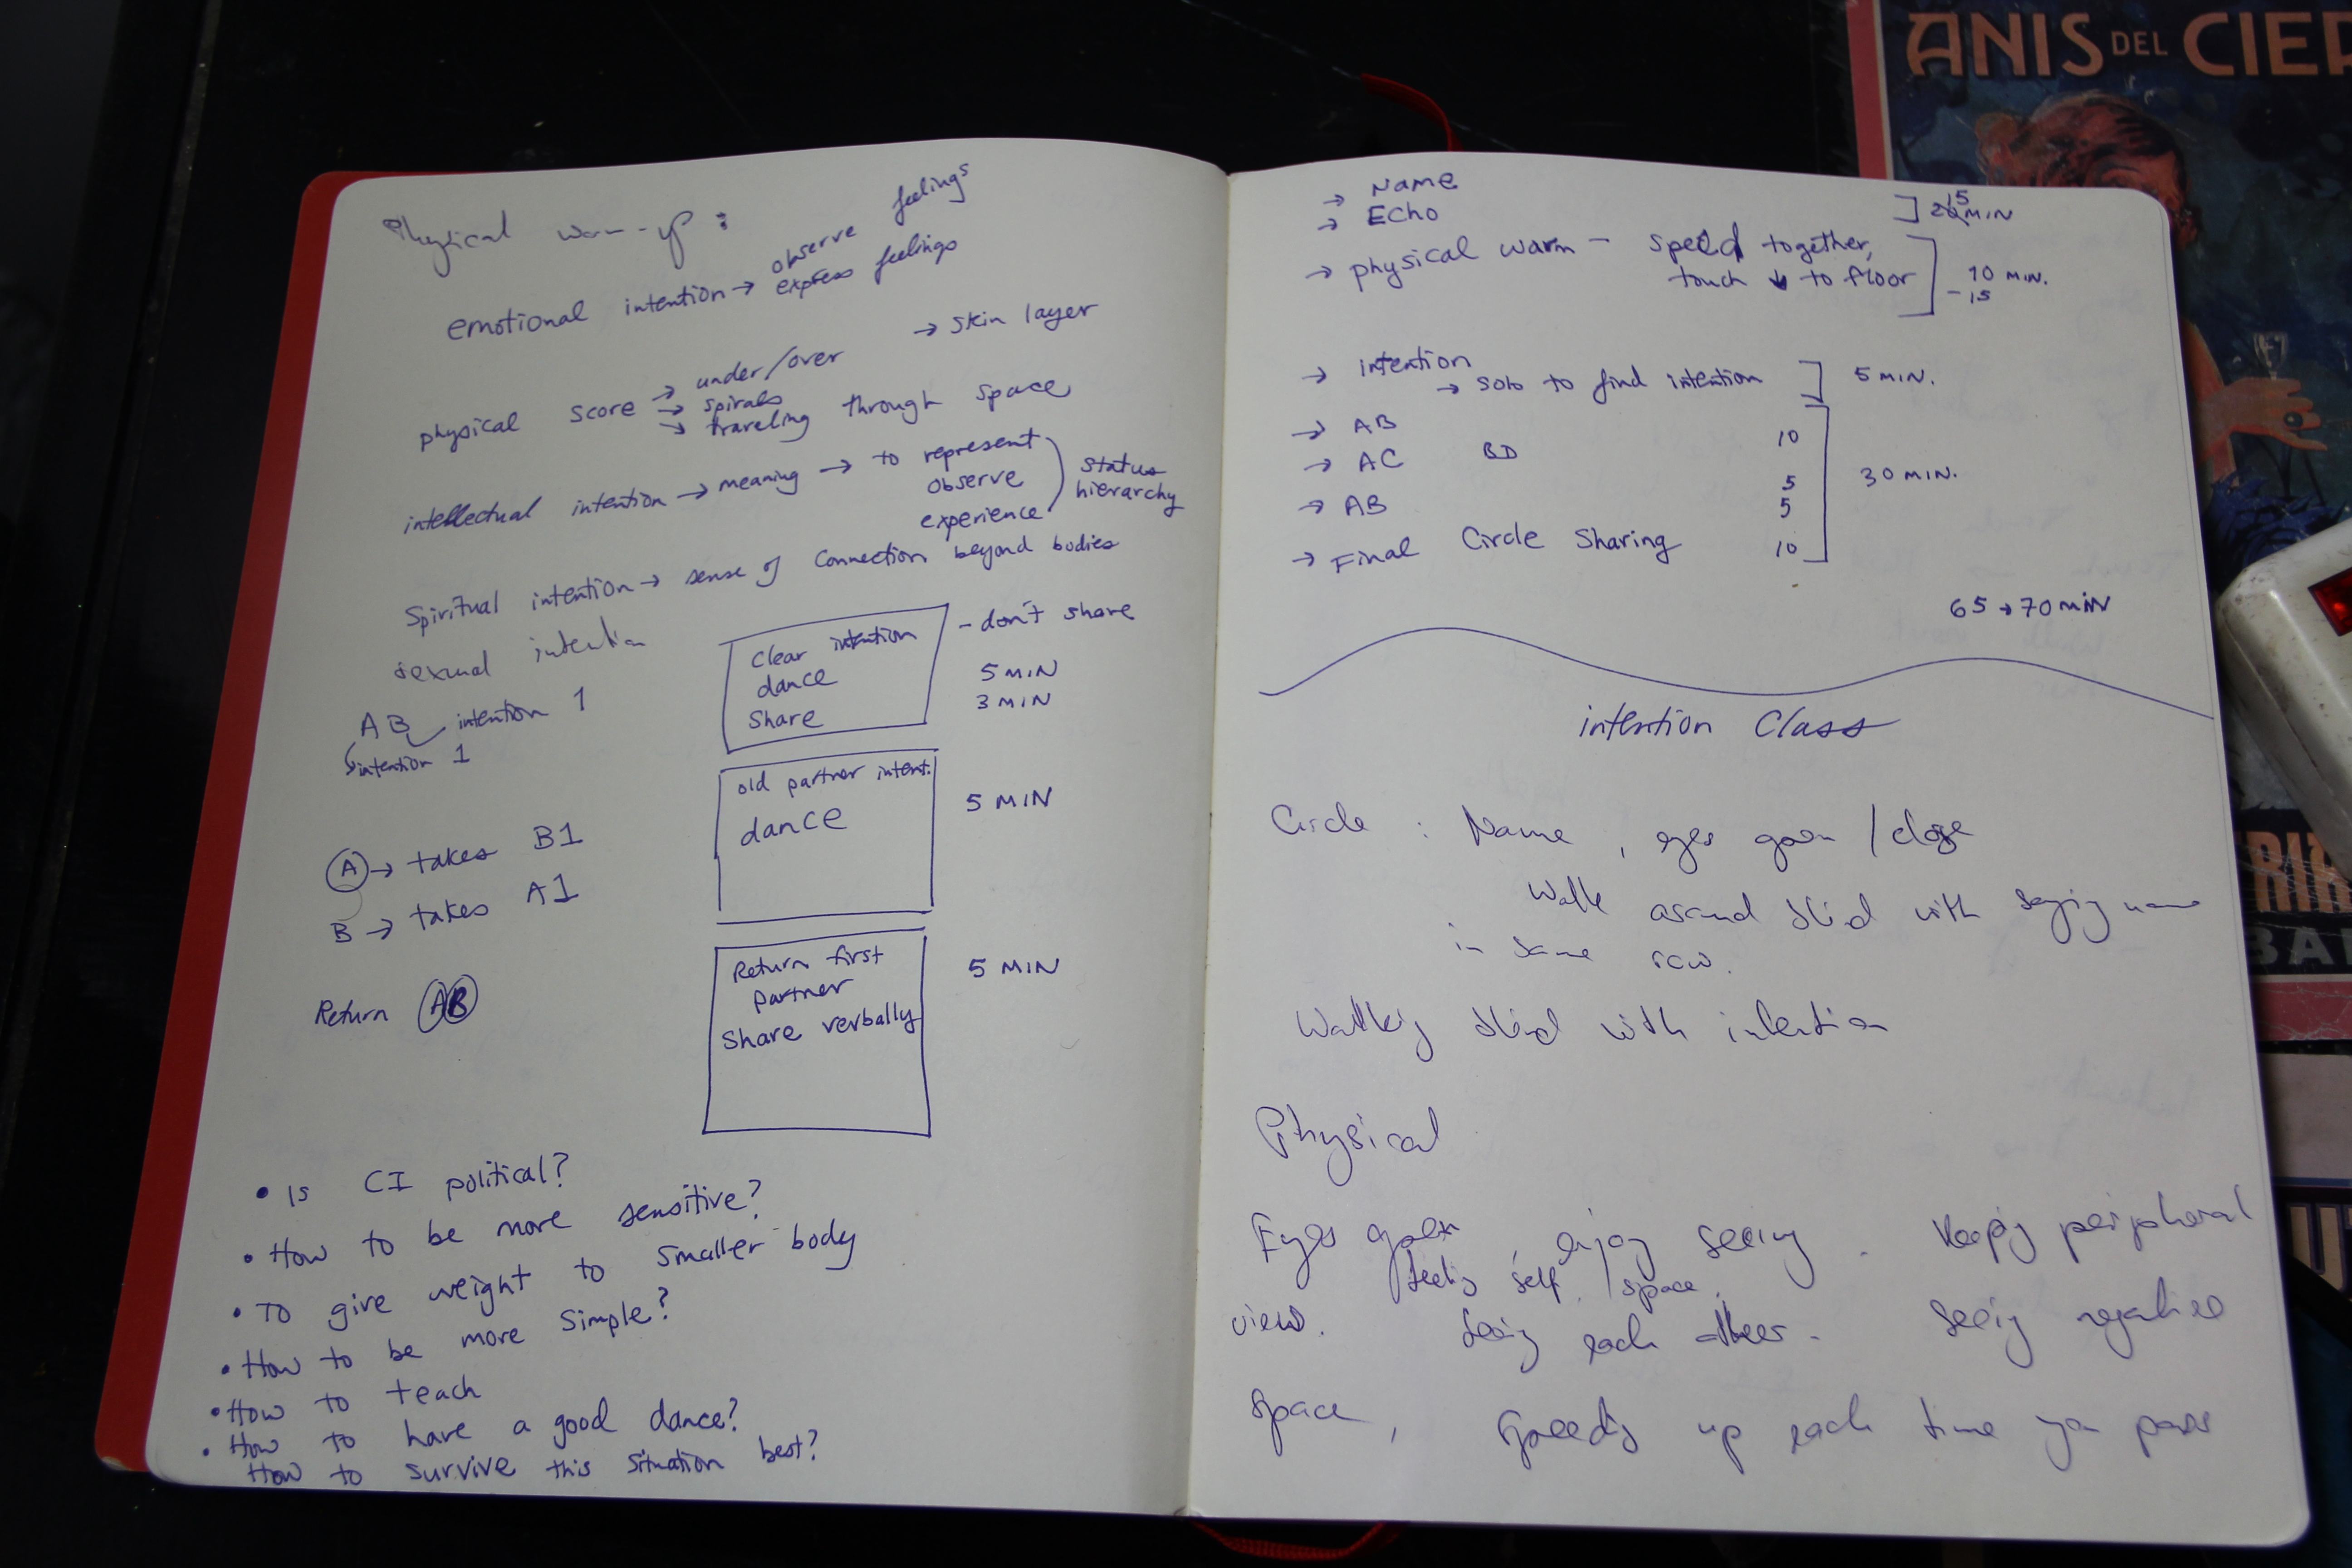 Physical warm-up :
emotional intention → observe feelings
express feelings
→ skin layer
physical score → under/over
→ spirals
→ traveling through space
intellectual intention → meaning → to represent
observe
experience
status
hierarchy
Spiritual intention → sense of connection beyond bodies
sexual intention
AB intention 1
intention 1
clear intention
dance
share
- don't share
5 MIN
3 MIN
old partner intent.
dance
5 MIN
A → takes B1
B → takes A1
Return AB
Return first
partner
share verbally
5 MIN
• Is CI political?
• How to be more sensitive?
• To give weight to smaller body
• How to be more simple?
• How to teach
• How to have a good dance?
How to survive this situation best?
→ Name
→ Echo
15
20 MIN
→ physical warm - speed together,
touch ↓ to floor
10 MIN.
- 15
→ intention
→ solo to find intention
5 MIN.
→ AB 10
→ AC BD
5
→ AB 5
→ Final Circle Sharing 10
30 MIN.
65 → 70 MIN
intention Class
Circle : Name , eyes open / close
Walk around blind with saying name
in same
Walking blind with intention
Physical
Eyes open, enjoy seeing. Keepig peripheral
self. space.
view. Seeig each other. Seeig negative
space, up each time you pass
ANIS DEL